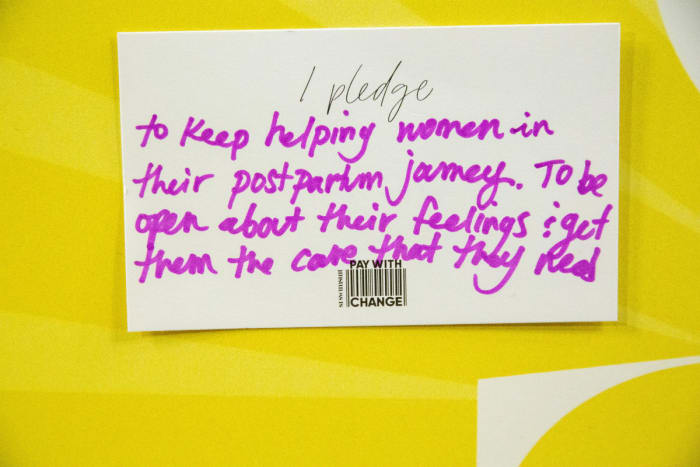 I pledge
to keep helping women in
their postpartum jorney. To be
open about their feelings & get
them the care that they need
PAY WITH
CHANGE